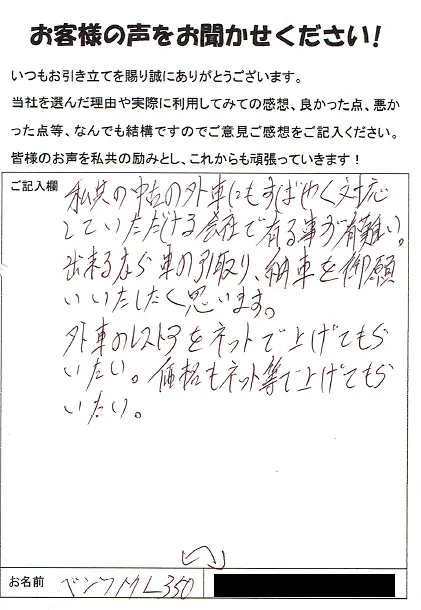 お客様の声をお聞かせください!
いつもお引き立てを賜り誠にありがとうございます。
当社を選んだ理由や実際に利用してみての感想、良かった点、悪か
った点等、なんでも結構ですのでご意見ご感想をご記入ください。
皆様のお声を私共の励みとし、これからも頑張っていきます!
ご記入欄
私共の中古の外車にもすばやく対応
していただける会社で有る事が有難い。
出来るなら車の引取り、納車を御願
いいたしたく思います。
外車のレストアをネットで上げてもら
いたい。価格もネット等で上げてもら
いたい。
お名前
ベンツML350